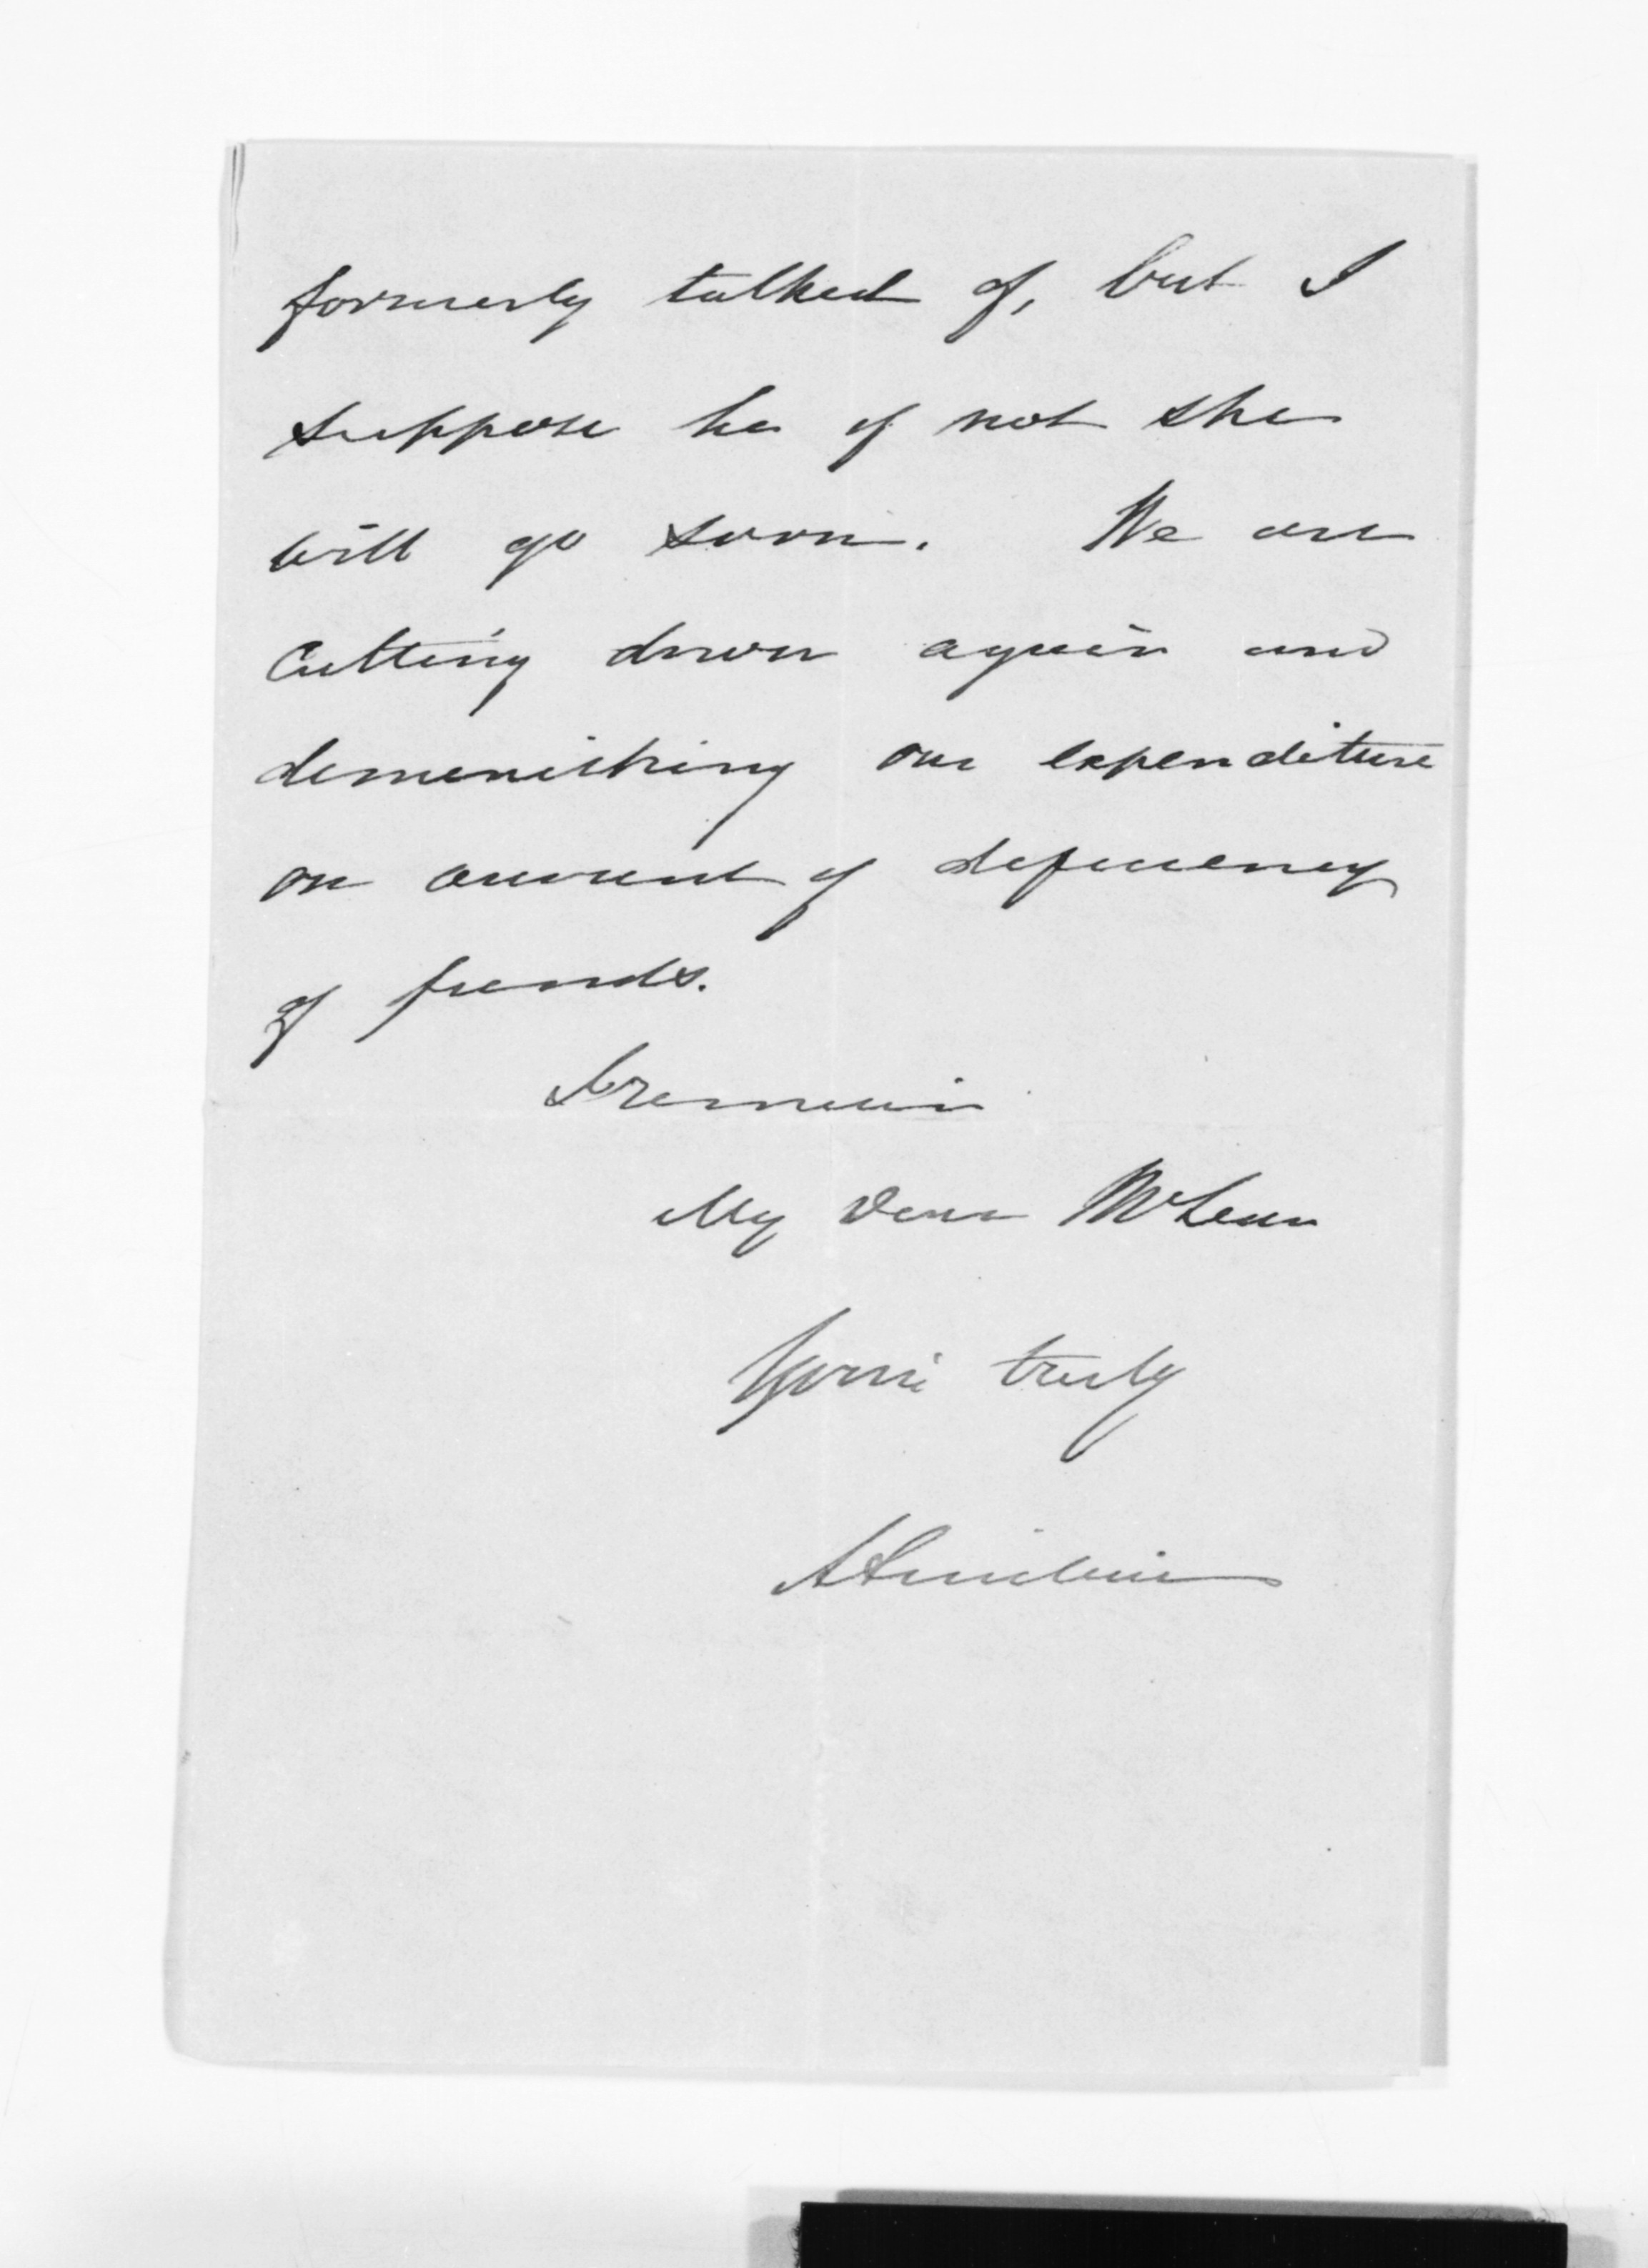 formerly talked of, but I
suppose he if not she
will go soon. We are
Cutting down again and
diminishing our expenditure
on account of deficiency
of funds.
I remain
My Dear McLean
Yours truly